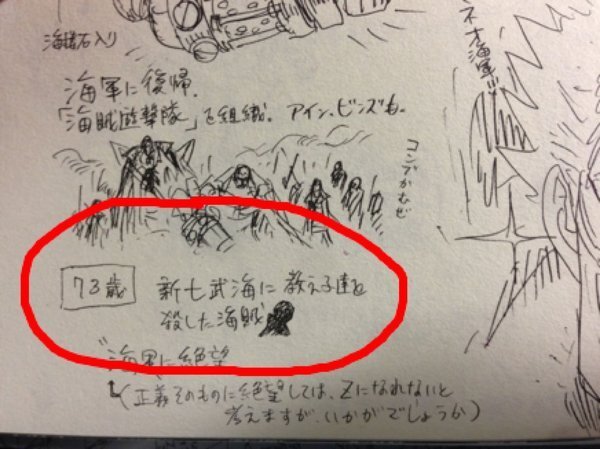 海楼石入り
海軍に復帰.
「海賊遊撃隊」を組織. アイン、ビンズも.
コンブかむぜ
ネオ海軍!!!
73歳
新七武海に教え子達を
殺した海賊
海軍に絶望
(正義そのものに絶望しては、Zになれないと
考えますが、いかがでしょうか)